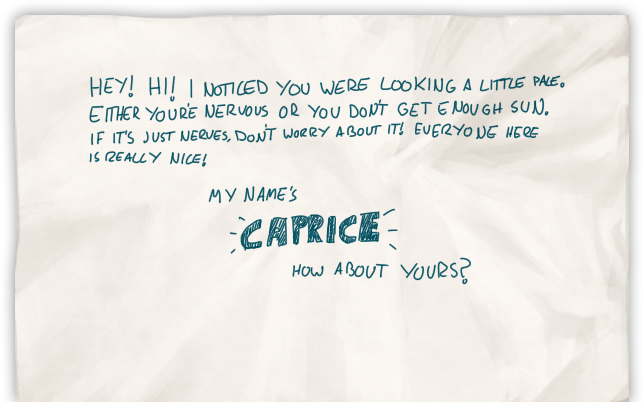 HEY! HI! I NOTICED YOU WERE LOOKING A LITTLE PALE.
EITHER YOU'RE NERVOUS OR YOU DON'T GET ENOUGH SUN.
IF IT'S JUST NERVES, DON'T WORRY ABOUT IT! EVERYONE HERE
IS REALLY NICE!
MY NAME'S
CAPRICE
HOW ABOUT YOURS?